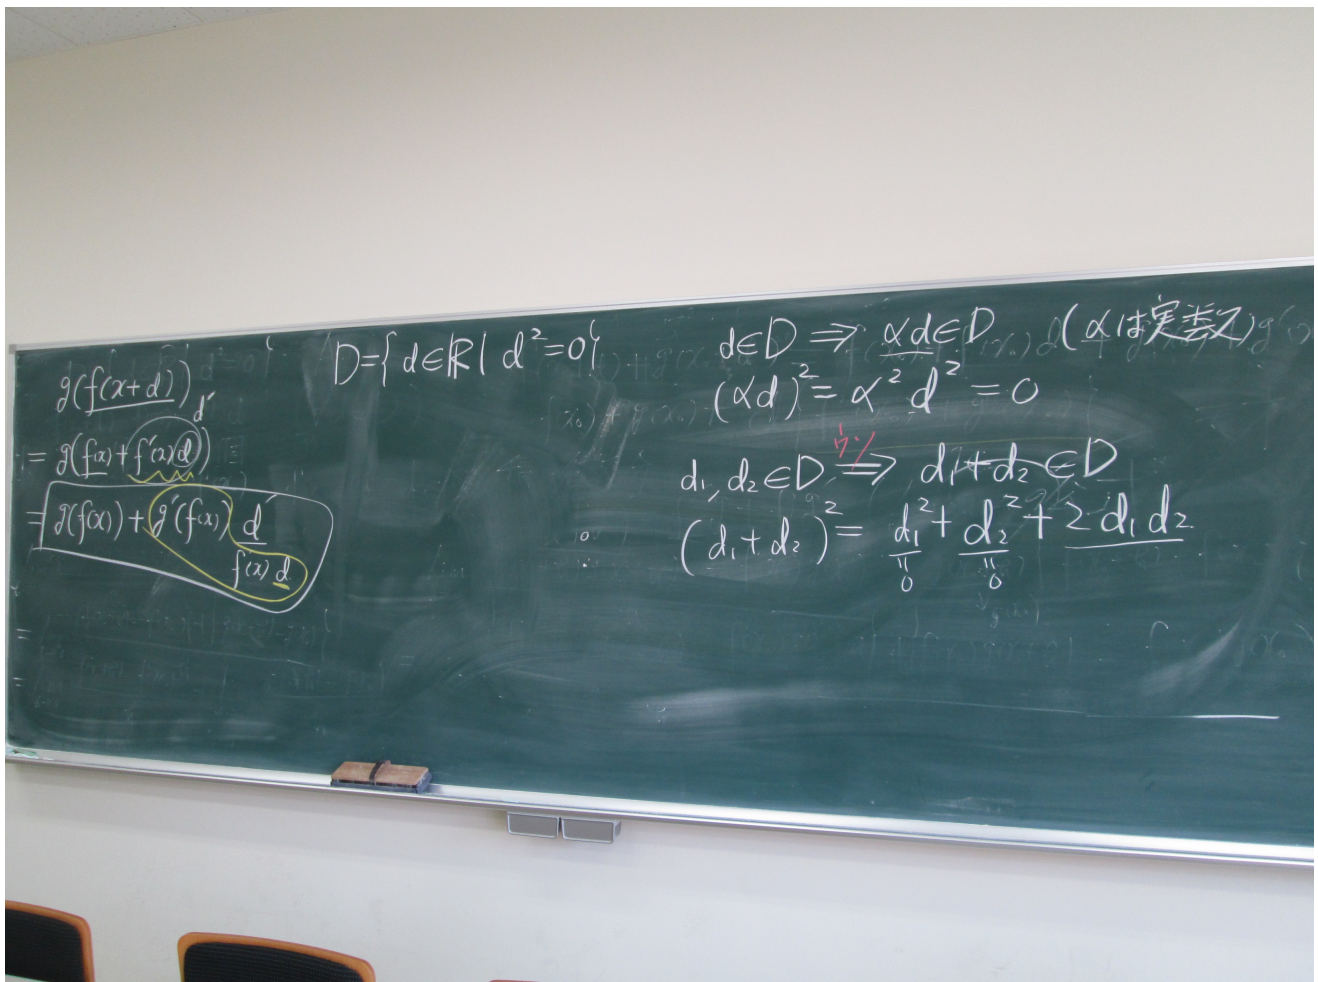 g(f(x+d))
d′
= g(f(x)+f′(x)d)
= g(f(x))+g′(f(x))d′
f′(x)d
D={d∈ℝ| d²=0}
d∈D ⇒ αd∈D (αは実数)
(αd)²=α²d²=0
ウソ
d₁,d₂∈D ⇒ d₁+d₂∈D
(d₁+d₂)²= d₁²+d₂²+2d₁d₂
= =
0 0